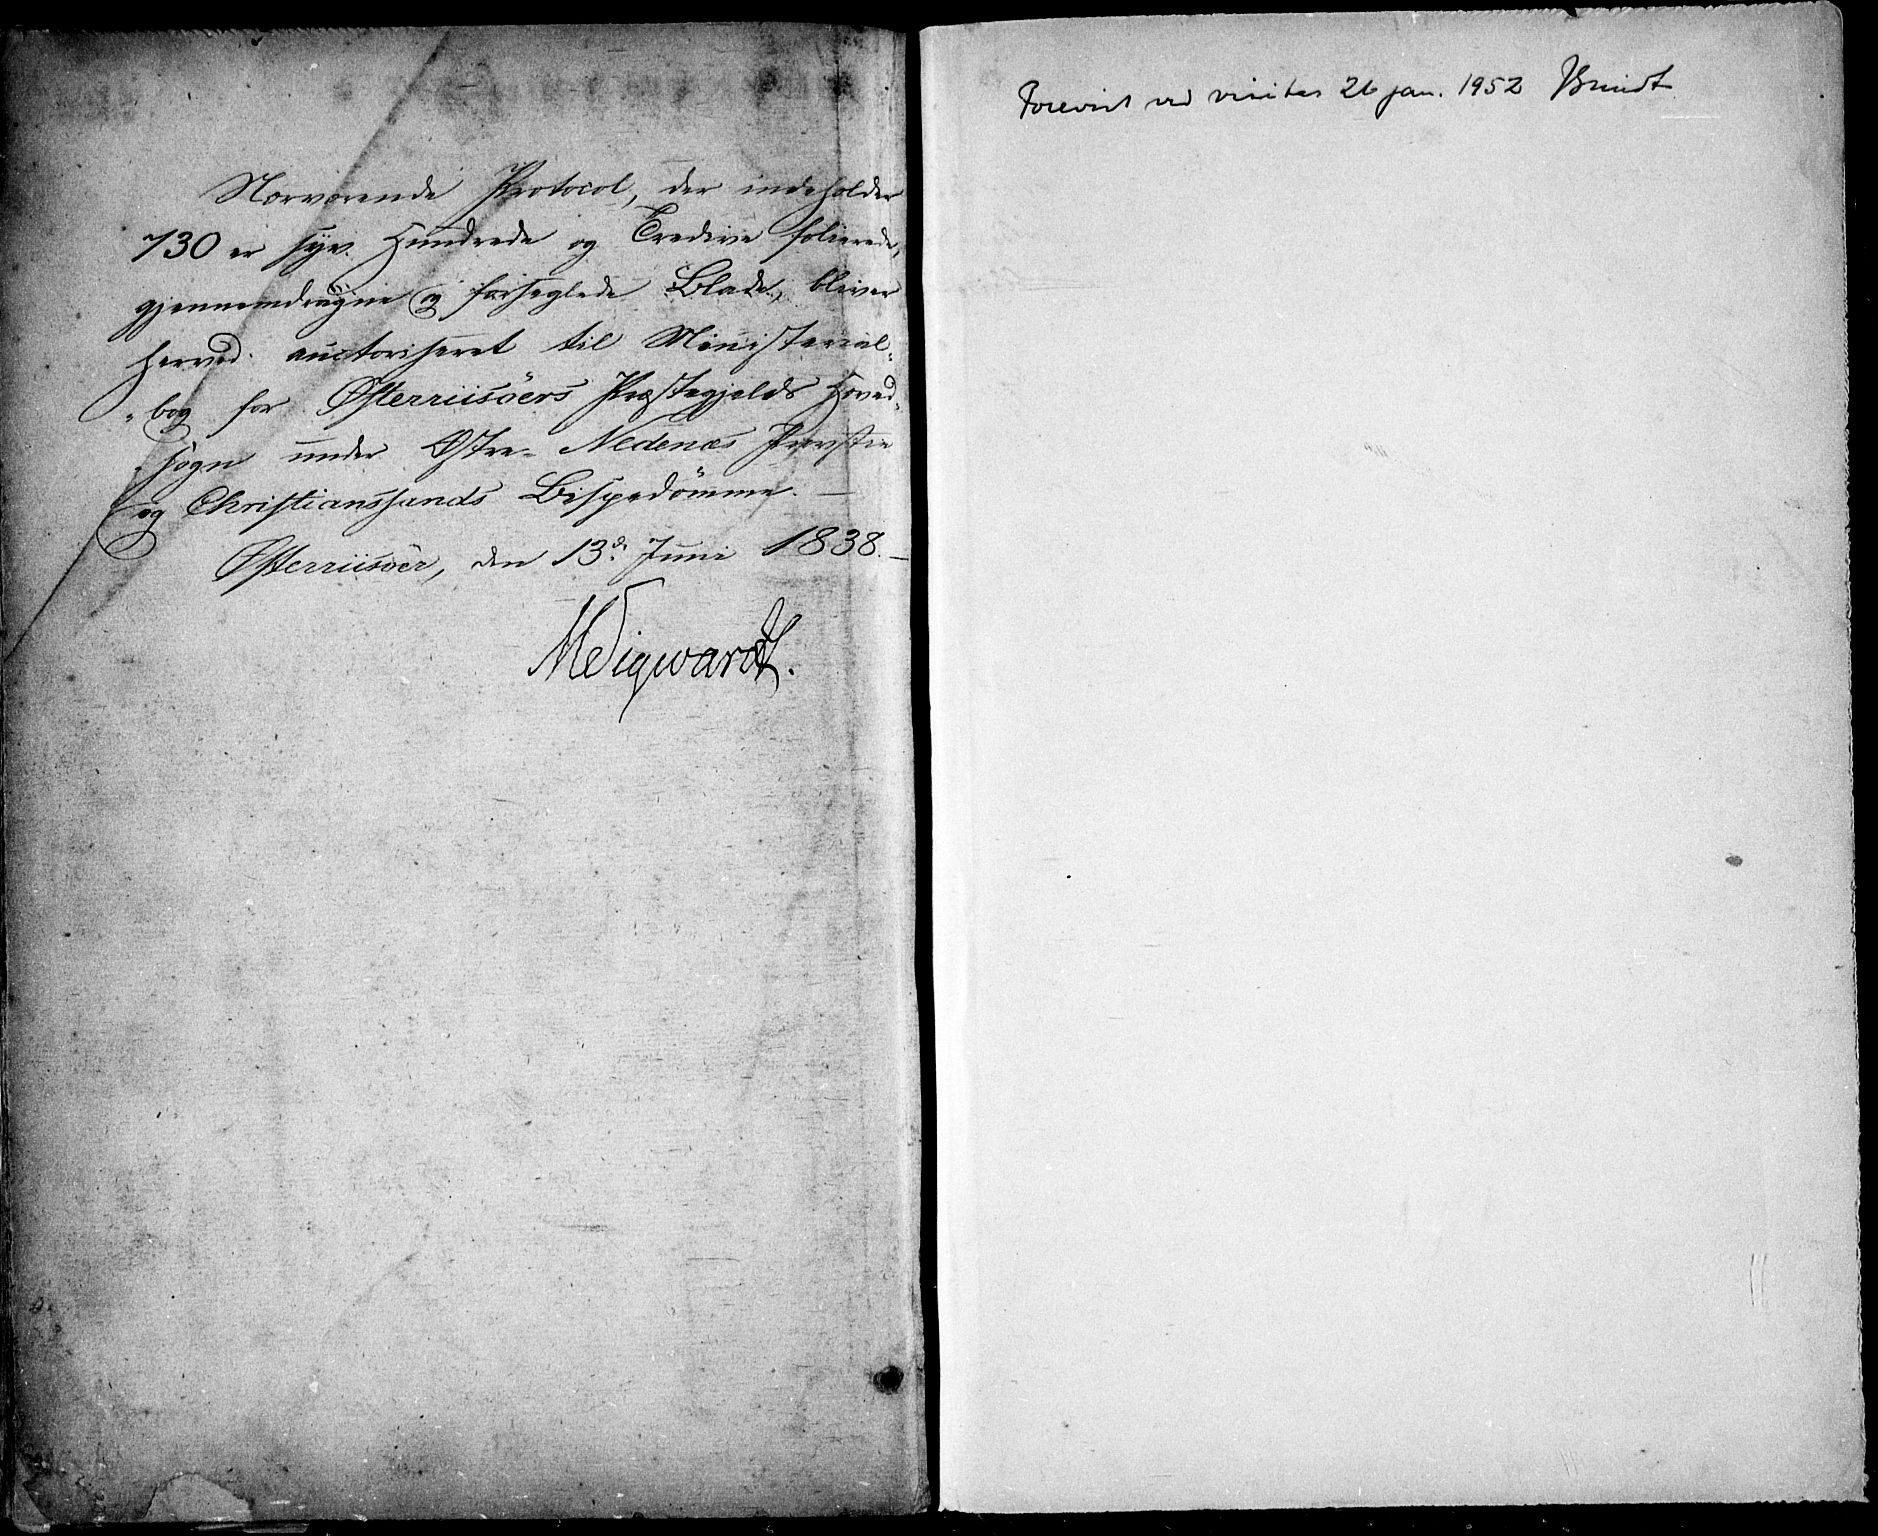 Nærværende Protocol, der indeholder
730 er syv Hundrede og Tredive folierede,
gjennemdragne og forseglede Blade, bliver
herved auctoriseret til Ministerial-
-bog for Østerriisöers Præstegjelds Hoved-
-sogn under Østre- Nedenæs Provstie
og Christianssands Bispedömme. —
Østerriisöer, den 13de Juni 1838. —
MSigwardt.
Forevist ved visitas 26 jan. 1952 JSmidt